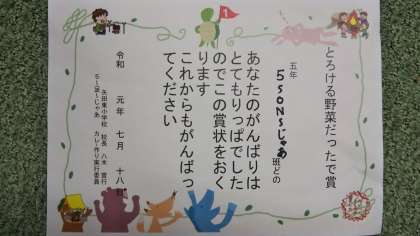 とろける野菜だったで賞
五年
5sonsじゃあ班どの
あなたのがんばりは
とてもりっぱでした
のでこの賞状をおく
ります
これからもがんばっ
てください
令和 元年 七月 十八日
矢田東小学校 校長 八木 宣行
カレー作り実行委員
1